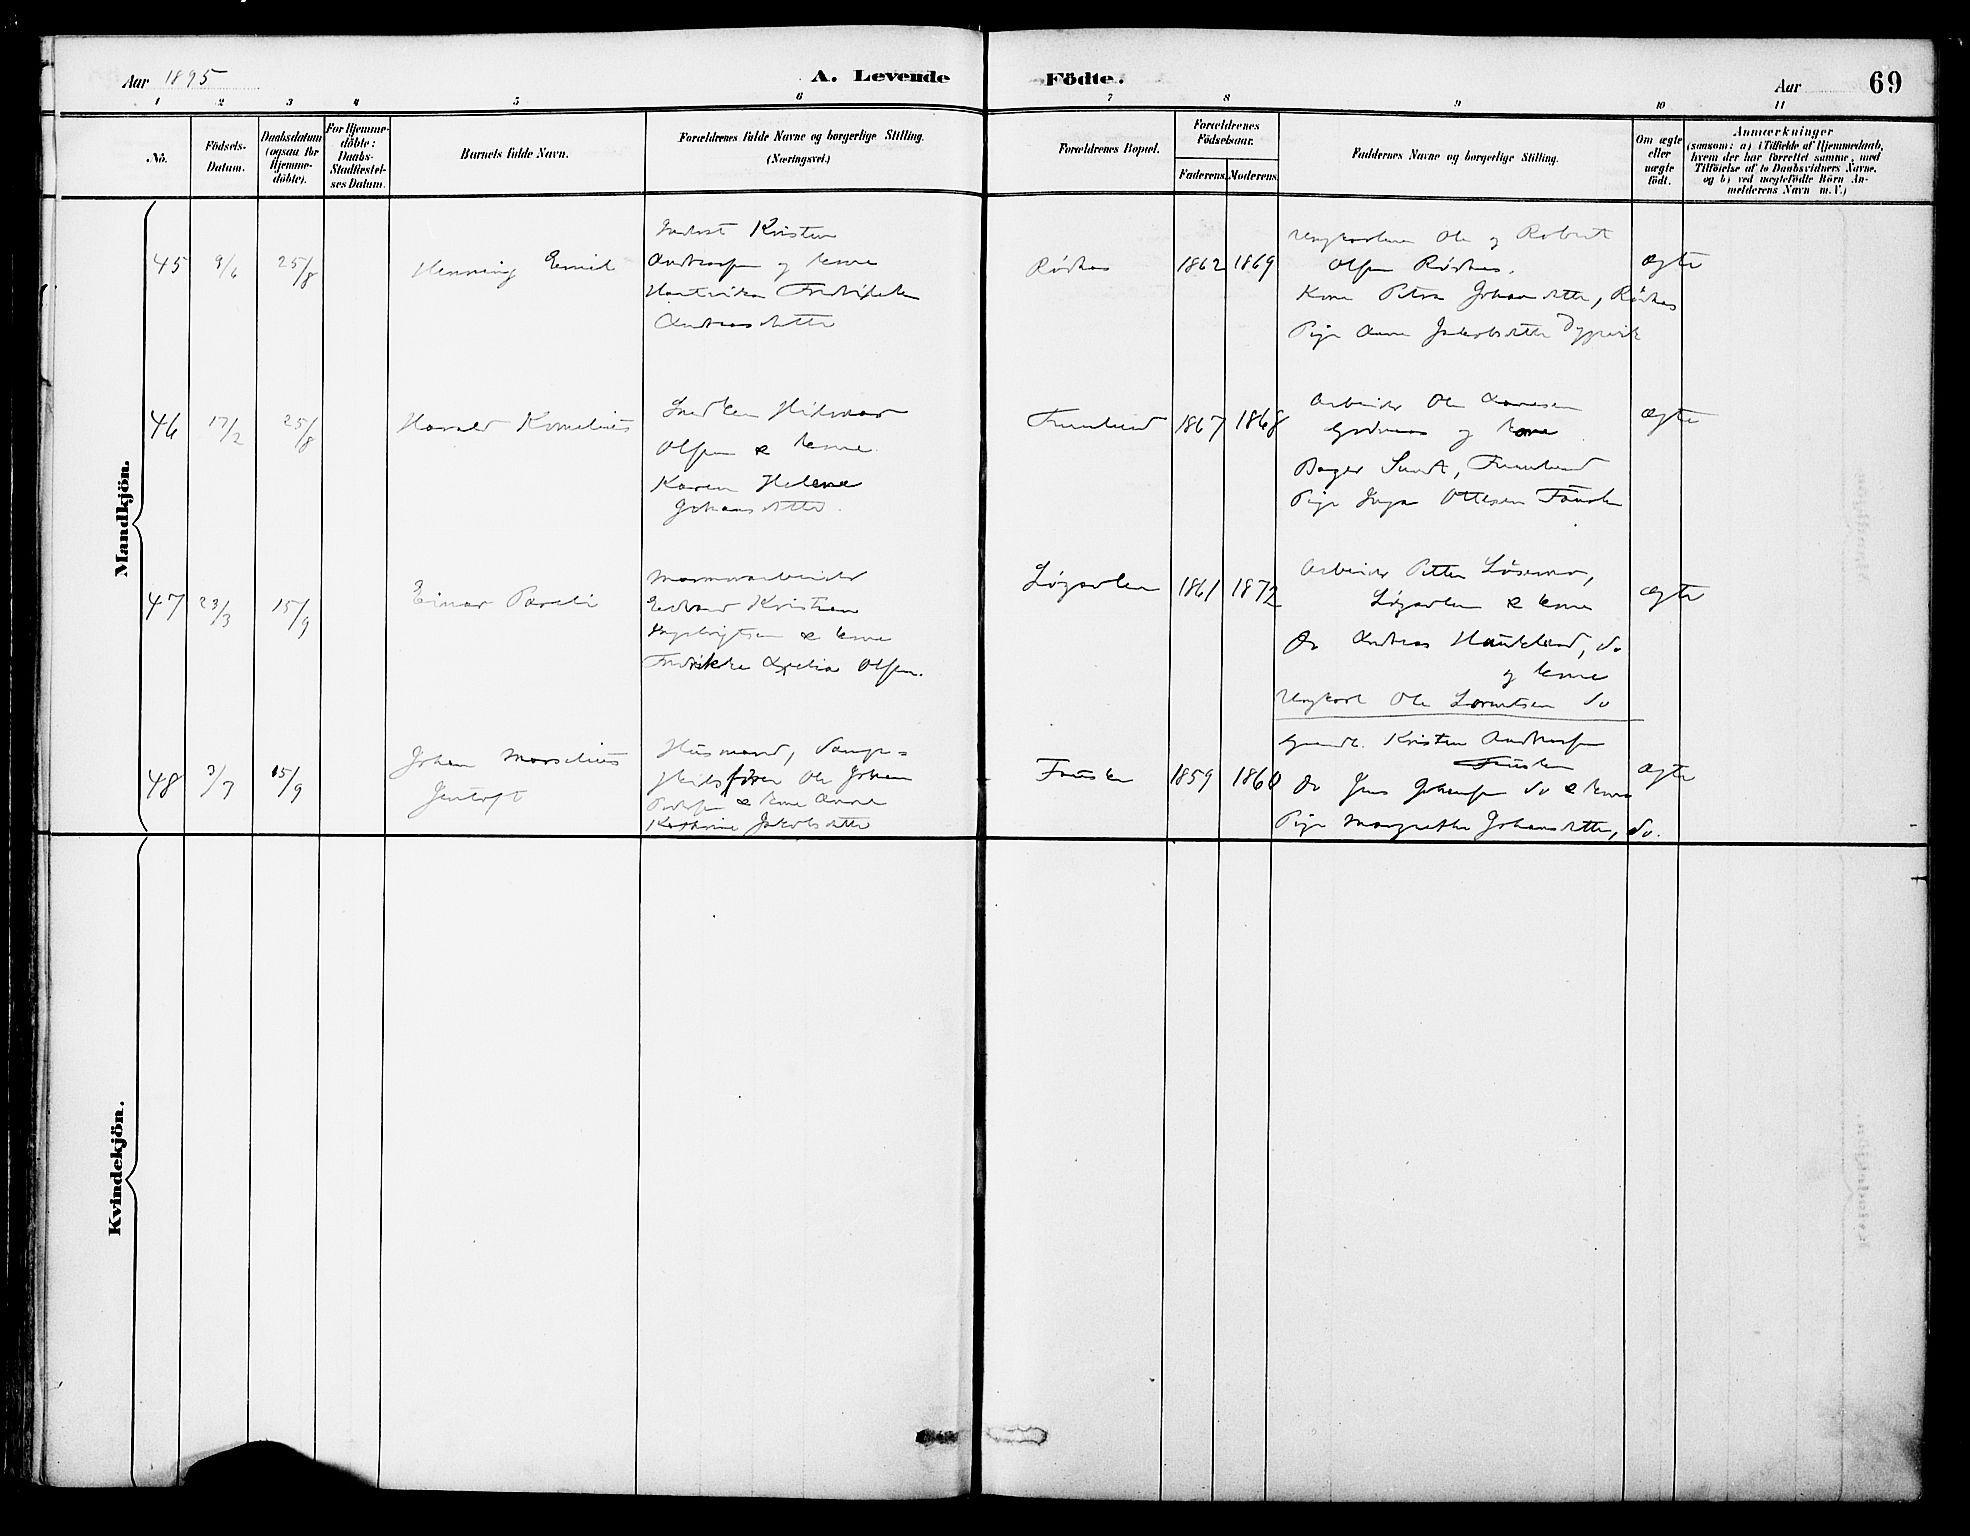 Aar 1895
A. Levende Födte.
Aar
69
1 2 3 4 5 6 7 8 9 10 11
No.
Födsels-
Datum.
Daabsdatum
(ogsaa for
Hjemme-
döbte).
For Hjemme-
döbte:
Daabs-
Stadfæstel-
ses Datum.
Barnets fulde Navn.
Forældrenes fulde Navne og borgerlige Stilling.
(Næringsvei.)
Forældrenes Bopæl.
Forældrenes
Födselsaar.
Faderens.
Moderens.
Faddernes Navne og borgerlige Stilling.
Om ægte
eller
uægte
födt.
Anmærkninger
(saasom: a) i Tilfælde af Hjemmedaab,
hvem der har forrettet samme, med
Tilföielse af to Daabsvidners Navne,
og b) ved uægtefödte Börn An-
melderens Navn m. V.)
Mandkjön.
45
9/6
25/8
Henning Emil
Inderst Kristen
Andreassen og kone
Fredrikke
Andreasdatter
Røsnes
1862
1869
Ungkarlene Ole og Robert
Olsen Røsnes.
Kone Petra Johansdatter,
Pige Anna Jakobsdatter Dypvik
ægte
46
17/2
25/8
Harald Kornelius
Snedker Hilmar
Olsen & kone
Karen Helene
Johansdatter.
Furulund
1867
1868
Arbeider Ole
og kone
Bager Sundt, Furulund
Pige Inga Ottesen Fauske
ægte
47
23/3
15/9
Einar Pareli
Marmorarbeider
Edvard Kristian
Ingebrigtsen & kone
Fredrikke Olsen.
Løgavlen
1861
1872
Arbeider Petter
Løgavlen & kone
Do Andreas Haukland, do
og kone
Ungkarl Ole Lorentsen do
ægte
48
3/7
15/9
Johan Marselius
Jentoft
Husmand, Damp-
skibsfører Ole Johan
Pedersen & kone Anna
Katharina Jakobsdatter
Fauske
1859
1860
Gaardb. Kristen Andreassen
Fauske
Do Jens Johansen do & kone
Pige Margrethe Johansdatter, do.
ægte
Kvindekjön.